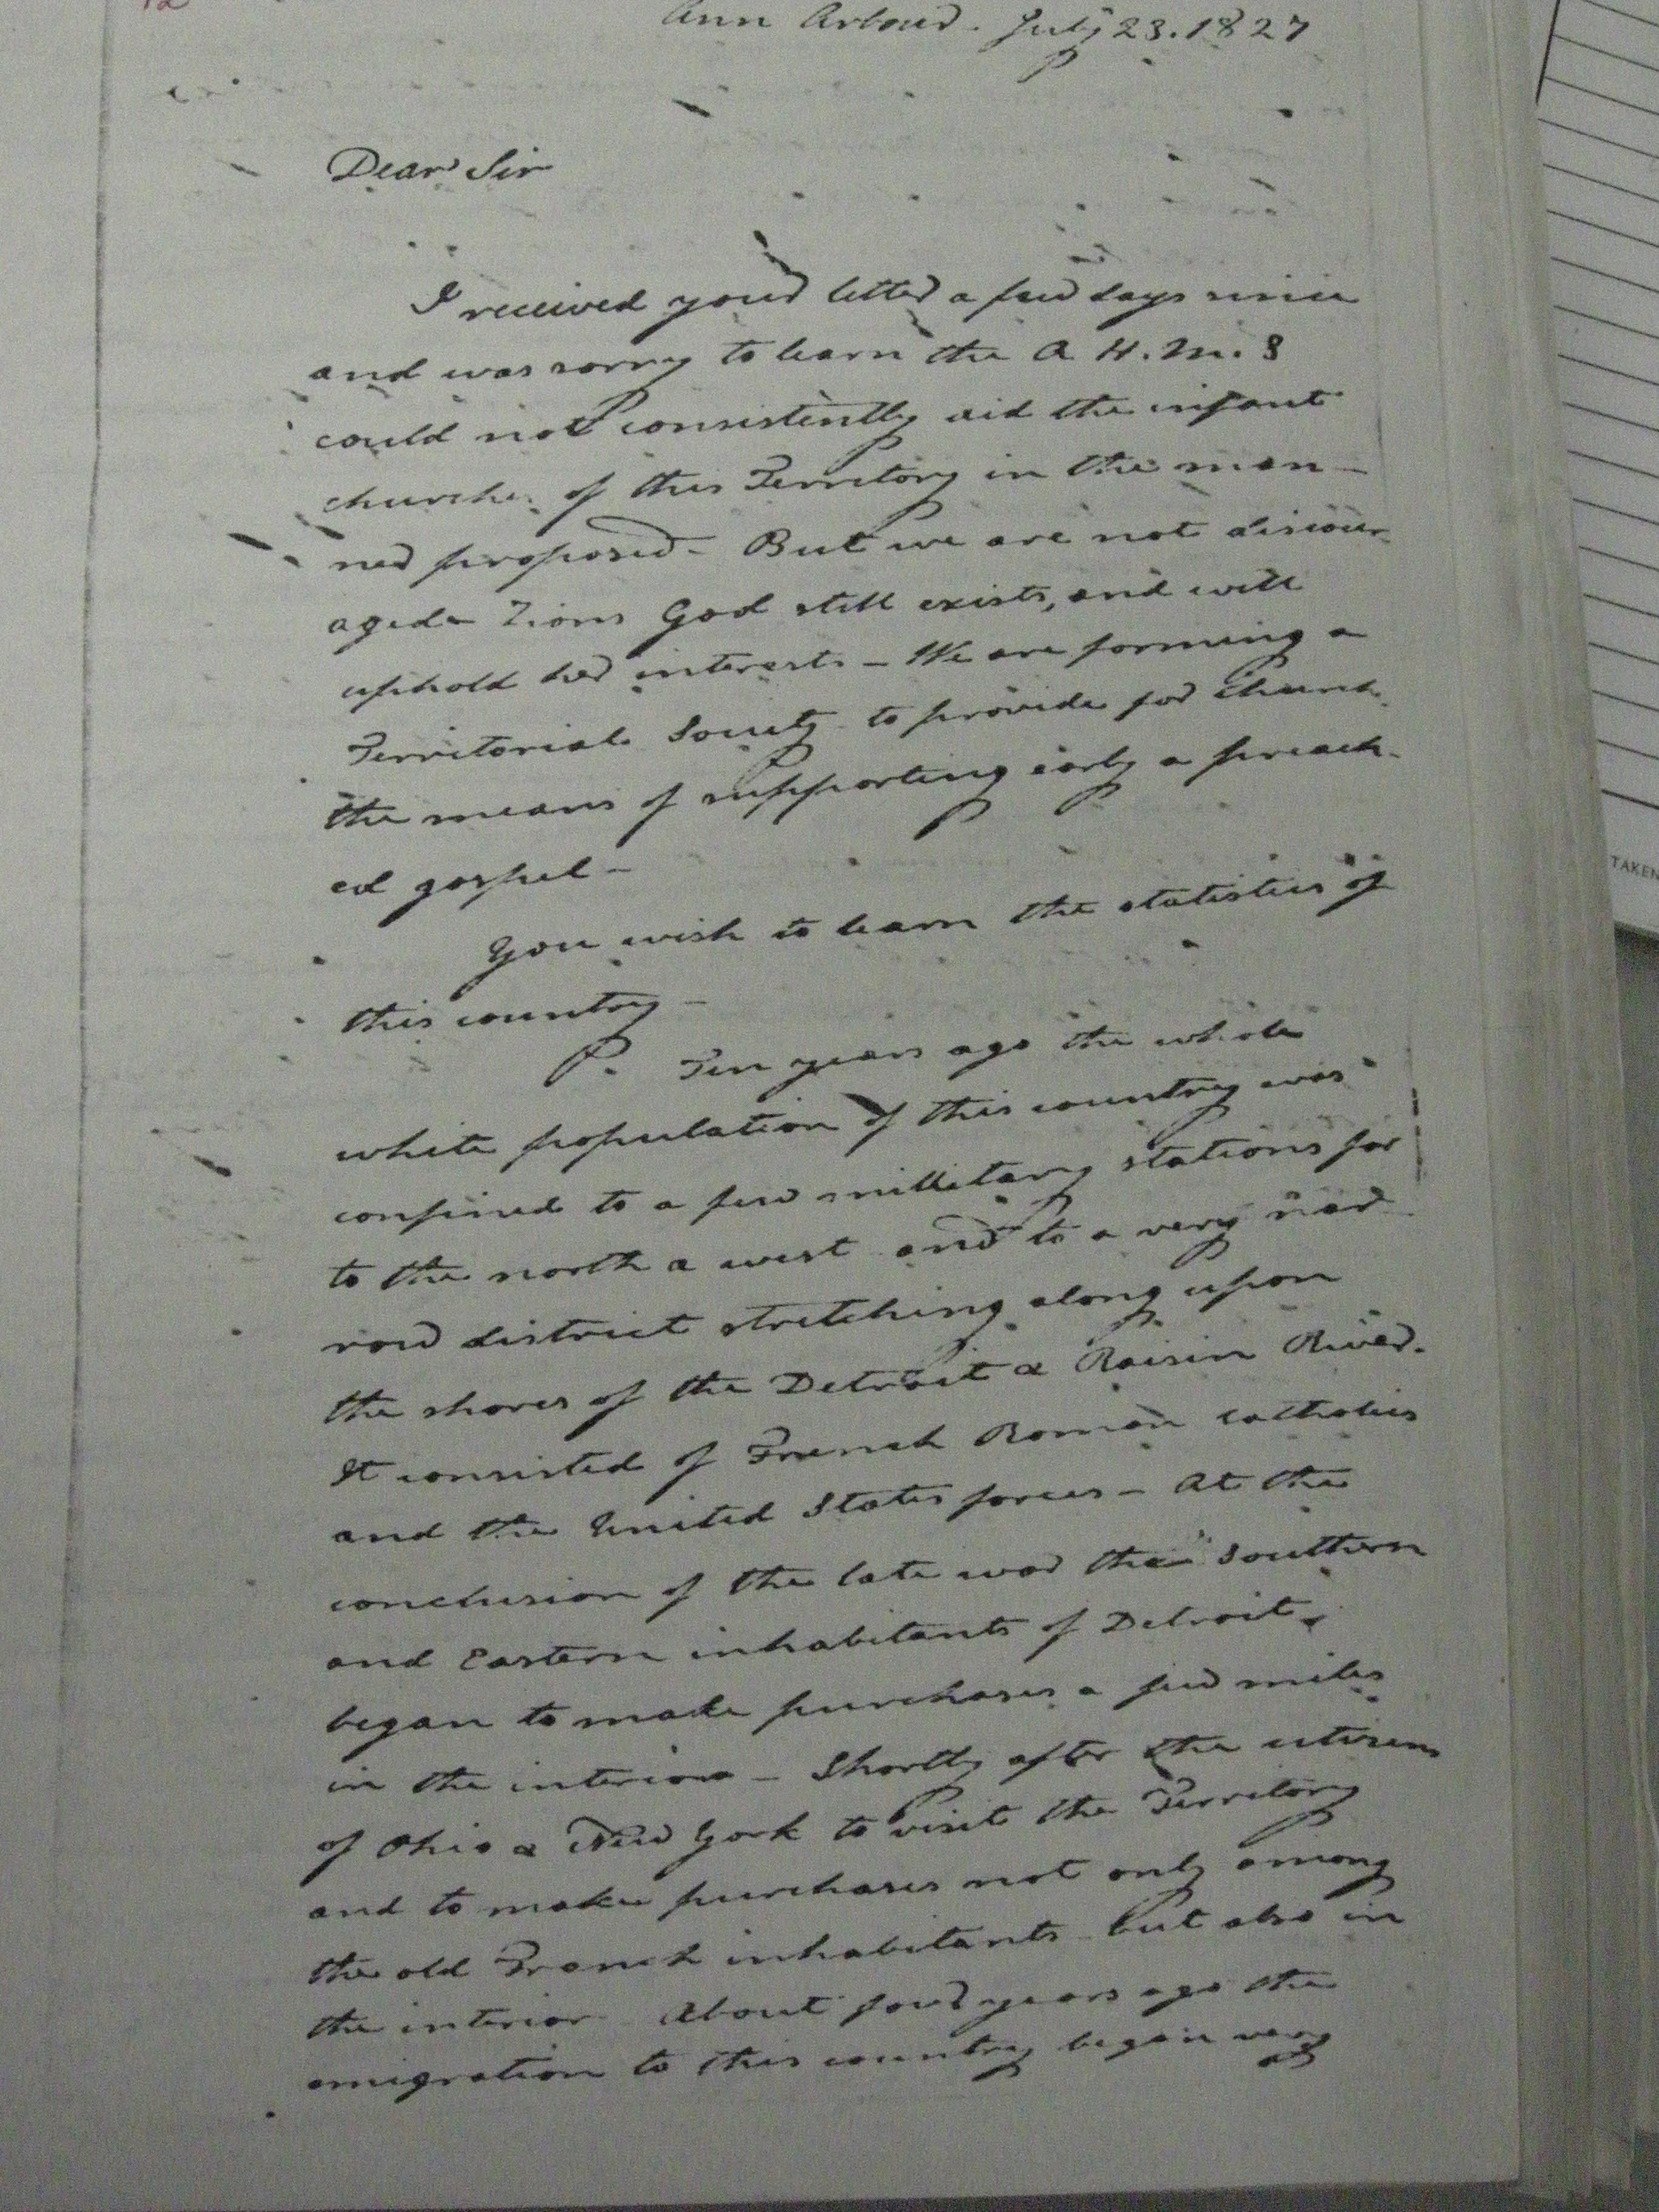 12
Ann Arbour. July 23. 1827
Dear Sir
I received your letter a few days since
and was sorry to learn the A. H. M. S
could not consistently aid the infant
churches of this Territory in the man-
ner proposed - But we are not discour-
aged - Zions God still exists, and will
uphold her interests - We are forming a
Territorial Society to provide for
the means of supporting early a preach-
ed gospel -
You wish to learn the statistics of
this country -
Ten years ago the whole
white population of this country was
confined to a few millitary stations far
to the north & west and to a very nar
row district stretching along upon
the shores of the Detroit & Raisin River.
It consisted of French Roman catholics
and the United States forces - At the
conclusion of the late war the Southern
and Eastern inhabitants of Detroit
began to make purchases a few miles
in the interior - Shortly after the citizens
of Ohio & New York to visit the Territory
and to make purchases not only among
the old French inhabitants but also in
the interior About four years ago the
emigration to this country began very
TAKEN